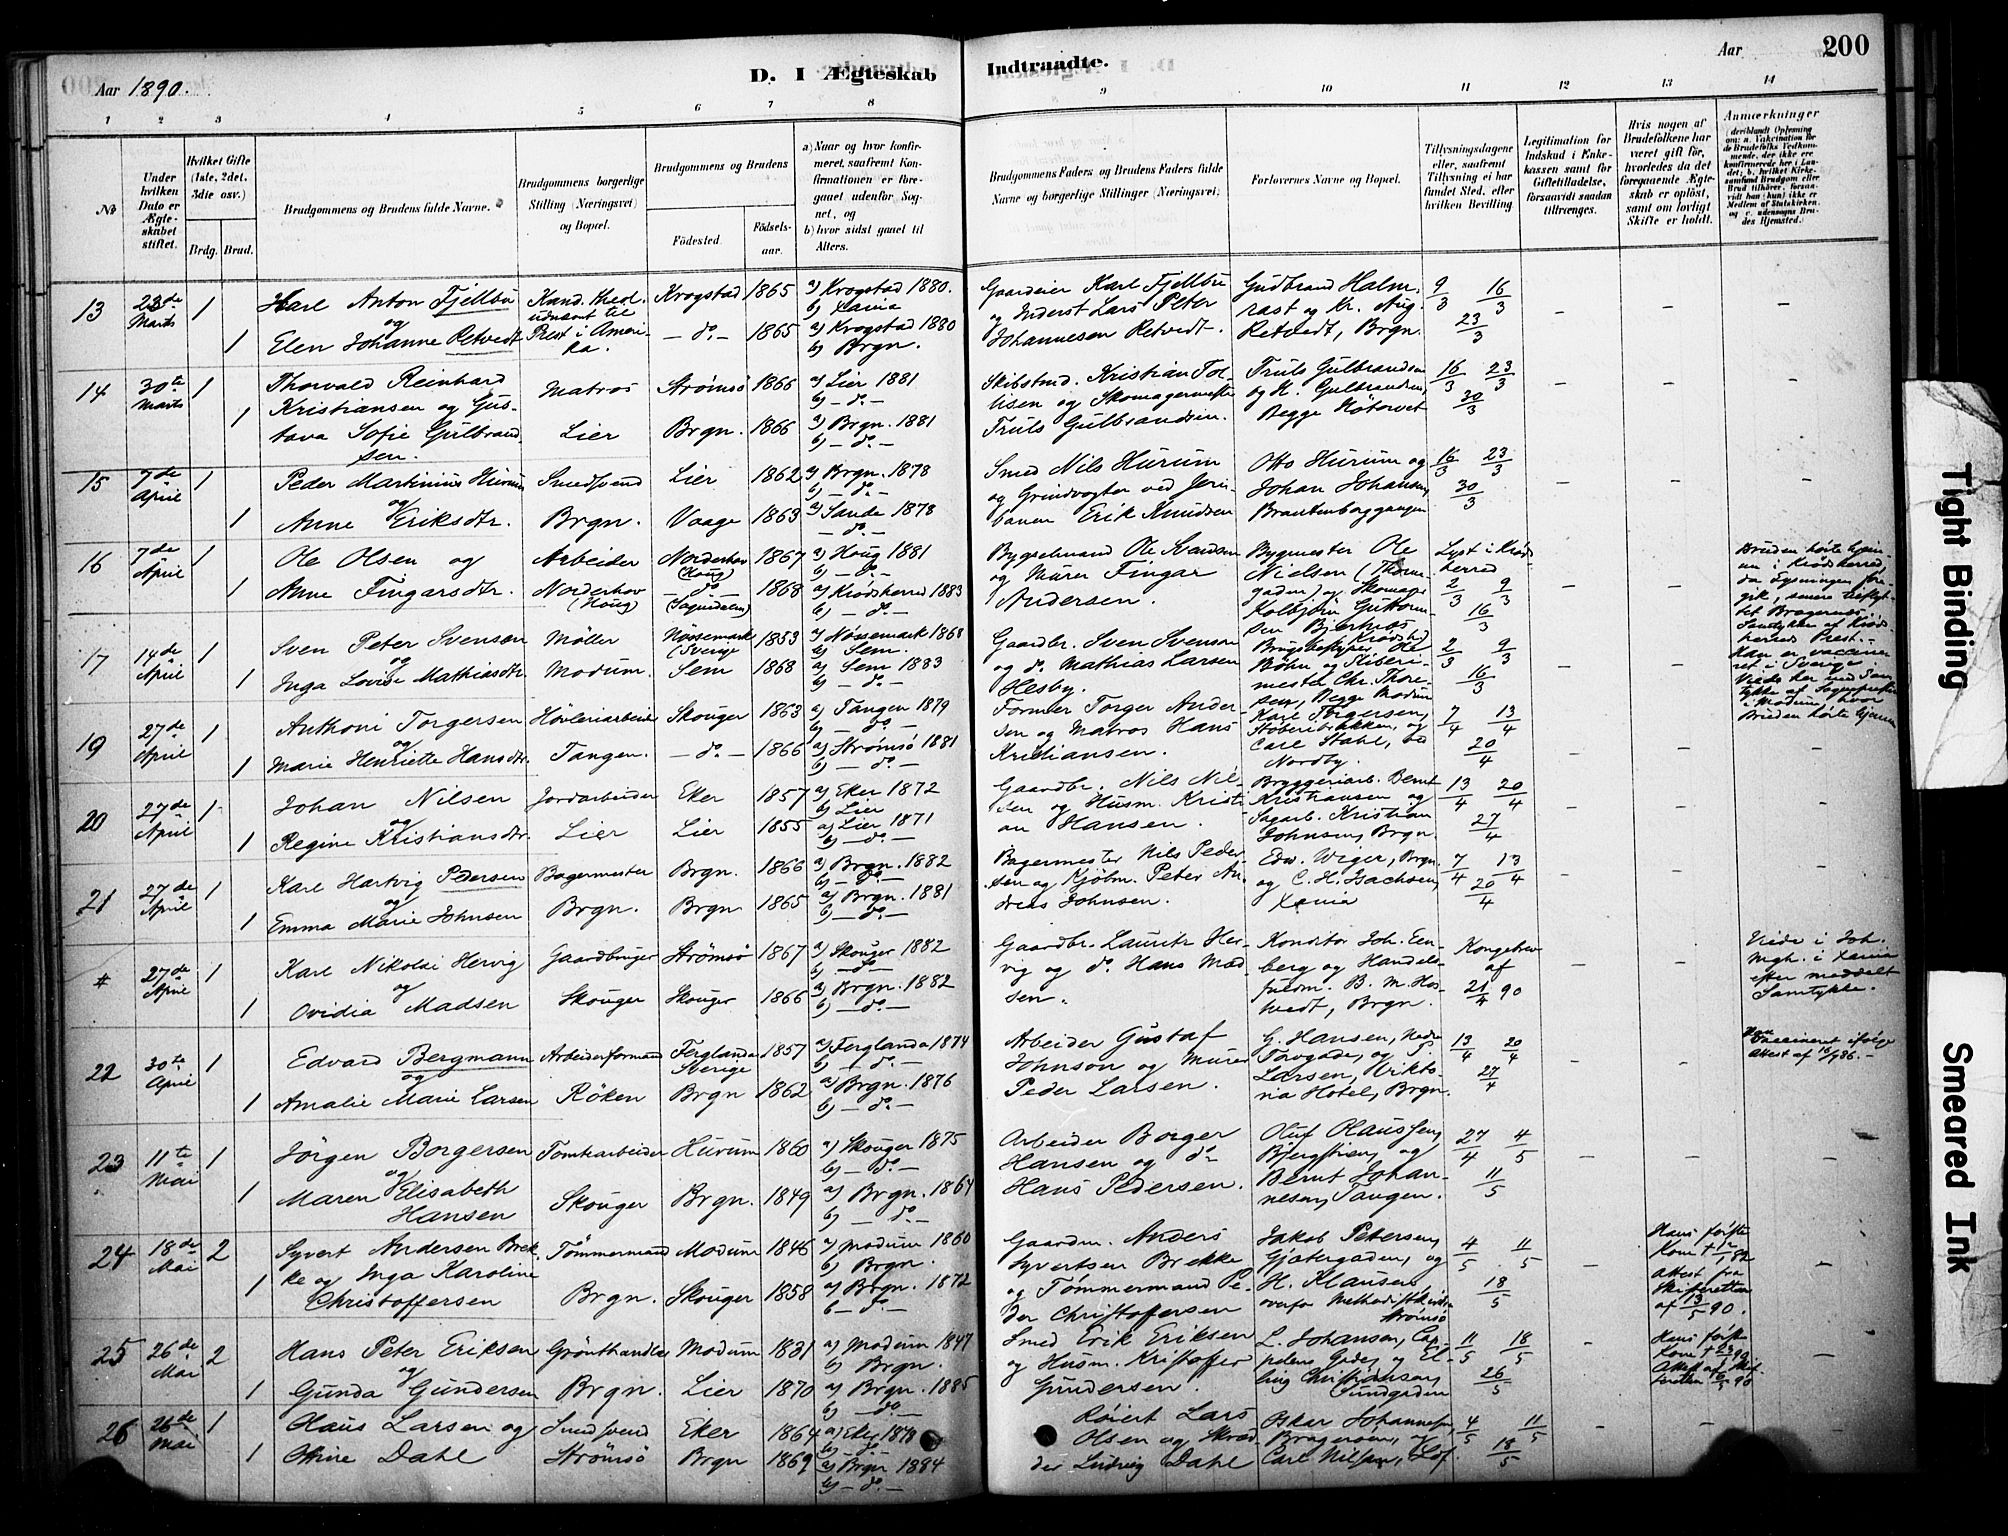 Aar 1890.
D. I Ægteskab
Indtraadte.
Aar
200
1 2 3 4 5 6 7 8 9 10 11 12 13 14
No
Under hvilken Dato er Ægteskabet stiftet.
Hvilket Gifte (1ste, 2det, 3die osv.)
Brdg. Brud.
Brudgommens og Brudens fulde Navne.
Brudgommens borgerlige Stilling (Næringsvei) og Bopæl.
Brudgommens og Brudens
Födested.
Födselsaar.
a) Naar og hvor konfirmeret, saafremt Konfirmationen er foregaaet udenfor Sognet, og
b) hvor sidst gaaet til Alters.
Brudgommens Faders og Brudens Faders fulde Navne og borgerlige Stillinger (Næringsvei)
Forlovernes Navne og Bopæl.
Tillysningsdagene eller, saafremt Tillysning ei har fundet Sted, efter hvilken Bevilling
Legitimation for Indskud i Enkekassen samt for Giftetilladelse, forsaavidt saadan tiltrænges.
Hvis nogen af Brudefolkene har været gift för, hvorledes da det foregaaende Ægteskab er oplöst, samt om lovligt Skifte er holdt.
Anmærkninger
13 23de Marts 1 Karl Anton Fjellbu Kand. theol. Krogstad 1865 a) Krogstad 1880. b) Xania Gaardeier Karl Fjellbu Gudbrand Halm- 9/3 16/3
og udnævnt til og Inderst Lars Peter rast og Kr. Aug. 23/3
1 Elen Johanne Retvedt Prest i Amerika. – do. – 1865 a) Krogstad 1880 b) Brgn. Johannesen Retvedt. Retvedt, Brgn.
14 30te Marts 1 Thorvald Reinhard Matros Strømsø 1866 a) Lier 1881 b) – do – Skibstmd. Kristian Tol- Truls Gulbrandsen 16/3 23/3
1 Kristiansen og Gus- lisen og Skomagermester og H. Gulbrandsen, 30/3
tava Sofie Gulbrand- Lier Brgn. 1866 a) Brgn. 1881 b) – do – Truls Gulbrandsen. Begge Høtorvet
sen.
15 7de April 1 Peder Martinius Hurum Smedsvend Lier 1862 a) Brgn. 1878 b) – do – Smed Nils Hurum Otto Hurum og 16/3 23/3
og og Grindvogter ved Jern- Johan Johansen, 30/3
1 Anne Eriksdtr. Brgn. Vaage 1863 a) Sande 1878 – do – banen Erik Knudsen
16 7de April 1 Ole Olsen og Arbeider Norderhov (Houg) 1867 a) Houg 1881 b) – do – Bygselmand Ole Bygmester Ole Lyst i Krødsherred
1 Anne Fingarsdtr. Norderhov (Houg) – do – 1868 a) Krødsherred 1883 b) – do – og Murer Fingar Nielsen 2/3 9/3
Andersen. Kolbjørn Guttormsen 16/3
17 14de April 1 Sven Peter Svensen Møller Nössemark (Sverige 1853 a) Nössemark 1868 b) Sem. Gaardbr. Sven Svensen Ole 2/3 9/3
og og do. Mathias Larsen Bøhn og 16/3
1 Inga Lovise Mathiasdtr. Modum. Sem 1868 a) Sem 1883 b) – do – Hesby. mester Chr. Thoresen, Begge Modum
19 27de April 1 Anthoni Torgersen Høvleriarbeider Skouger 1863 a) Tangen 1879 b) – do – Former Torger Ander- Karl Torgersen, 7/4 13/4
og sen og Matros Hans og 20/4
1 Marie Henriette Hansdtr. Tangen. – do. – 1866 a) Strømsø 1881 b) – do – Kristiansen. Carl Stahl, Nordby.
20 27de April 1 Johan Nilsen Jordarbeider Eker 1857 a) Eker 1872 b) Lier Gaardbr. Nils Nil- Bryggeriarb. Bernt 13/4 20/4
og sen og Husm. Kristi- Kristiansen og 27/4
1 Regine Kristiansdtr. Lier Lier 1855 a) Lier 1871 b) – do – an Hansen. Sagarb. Kristian Johnsen, Brgn.
21 27de April 1 Karl Hartvig Pedersen Bagermester Brgn. 1866 a) Brgn. 1882 b) – do – Bagermester Nils Peder- Edv. Wiger, Brgn. 7/4 13/4
og sen og Kjøbm. Peter An- og C. H. Isachsen, 20/4
1 Emma Marie Johnsen Brgn. Brgn 1865 a) Brgn. 1881 b) – do – dreas Johnsen. Xania
# 27de April 1 Karl Nikolai Hervig Gaardbruger Strømsø 1867 a) Skouger 1882 b) – do – Gaardbr. Lauritz Her- Konditor Joh. Een- Kongebrev
og vig og do. Hans Mad- berg og Handels- af
1 Ovidia Madsen Skouger Skouger 1866 a) Brgn. 1882 b) – do – sen. fuldm. B. M. Hosvedt, Brgn. 21/4 90
Viede i Joh. Mgh. i Xania efter meddelt Samtykke.
22 30te April 1 Edvard Bergmann Arbeiderformand Ferglanda Sverige 1857 a) Ferglanda 1874 b) – do – Arbeider Gustaf G. Hansen, Nedre 13/4 20/4
og Johnson og Murer Torvgade, og P. 27/4
1 Amalie Marie Larsen Røken Brgn 1862 a) Brgn. 1876 b) – do – Peder Larsen. Larsen, Viktoria Hotel, Brgn.
Han Vaccineret ifølge Attest af
23 11te Mai 1 Jörgen Borgersen Tomtearbeider Hurum 1860 a) Skouger 1875 b) – do – Arbeider Borger Oluf Olaussen, 27/4 4/5
og Hansen og do og 11/5
1 Maren Elisabeth Hansen Skouger Brgn. 1849 a) Brgn. 1864 b) – do – Hans Pedersen. Bernt Johannesen, Tangen.
24 18de Mai 2 Syvert Andersen Brek- Tömmermand Modum 1846 a) Modum 1860 b) Brgn. Gaardm. Anders Jakob Petersen, 4/5 11/5
ke og Inga Karoline Syvertsen Brekke Gjetergaden, og 18/5
1 Christoffersen Brgn. Skouger 1858 a) Brgn. 1872 b – do – og Tømmermand Pe- H. Klausen,
der Christoffersen overfor Methodistkirken Strømsø
Hans første Kone † Attest fra Skifteretten af 13/5 90.
25 26de Mai 2 Hans Peter Eriksen Grønthandler Modum 1831 a) Modum 1847 b) Brgn. Smed Erik Eriksen L. Johansen, Cap- 11/5 18/5
og og Husm. Kristoffer pelens Gade, og El- 26/5
1 Gunda Gundersen Brgn. Lier 1870 a) Brgn. 1885 b) – do – Gundersen. ling Christiansen, Sundgaden
26 26de Mai 1 Olaus Larsen og Smedsvend Eker 1864 a) Eker 1878 b) – do – Røiert Lars Oskar Johannesen, 4/5 11/5
1 Otine Dahl Strömsö Brgn 1869 a) Brgn 1884 b) – do – Olsen og Skræd- Bragerøen, og 18/5
der Ludvig Dahl Carl Nilsen,
Tight Binding
Smeared Ink